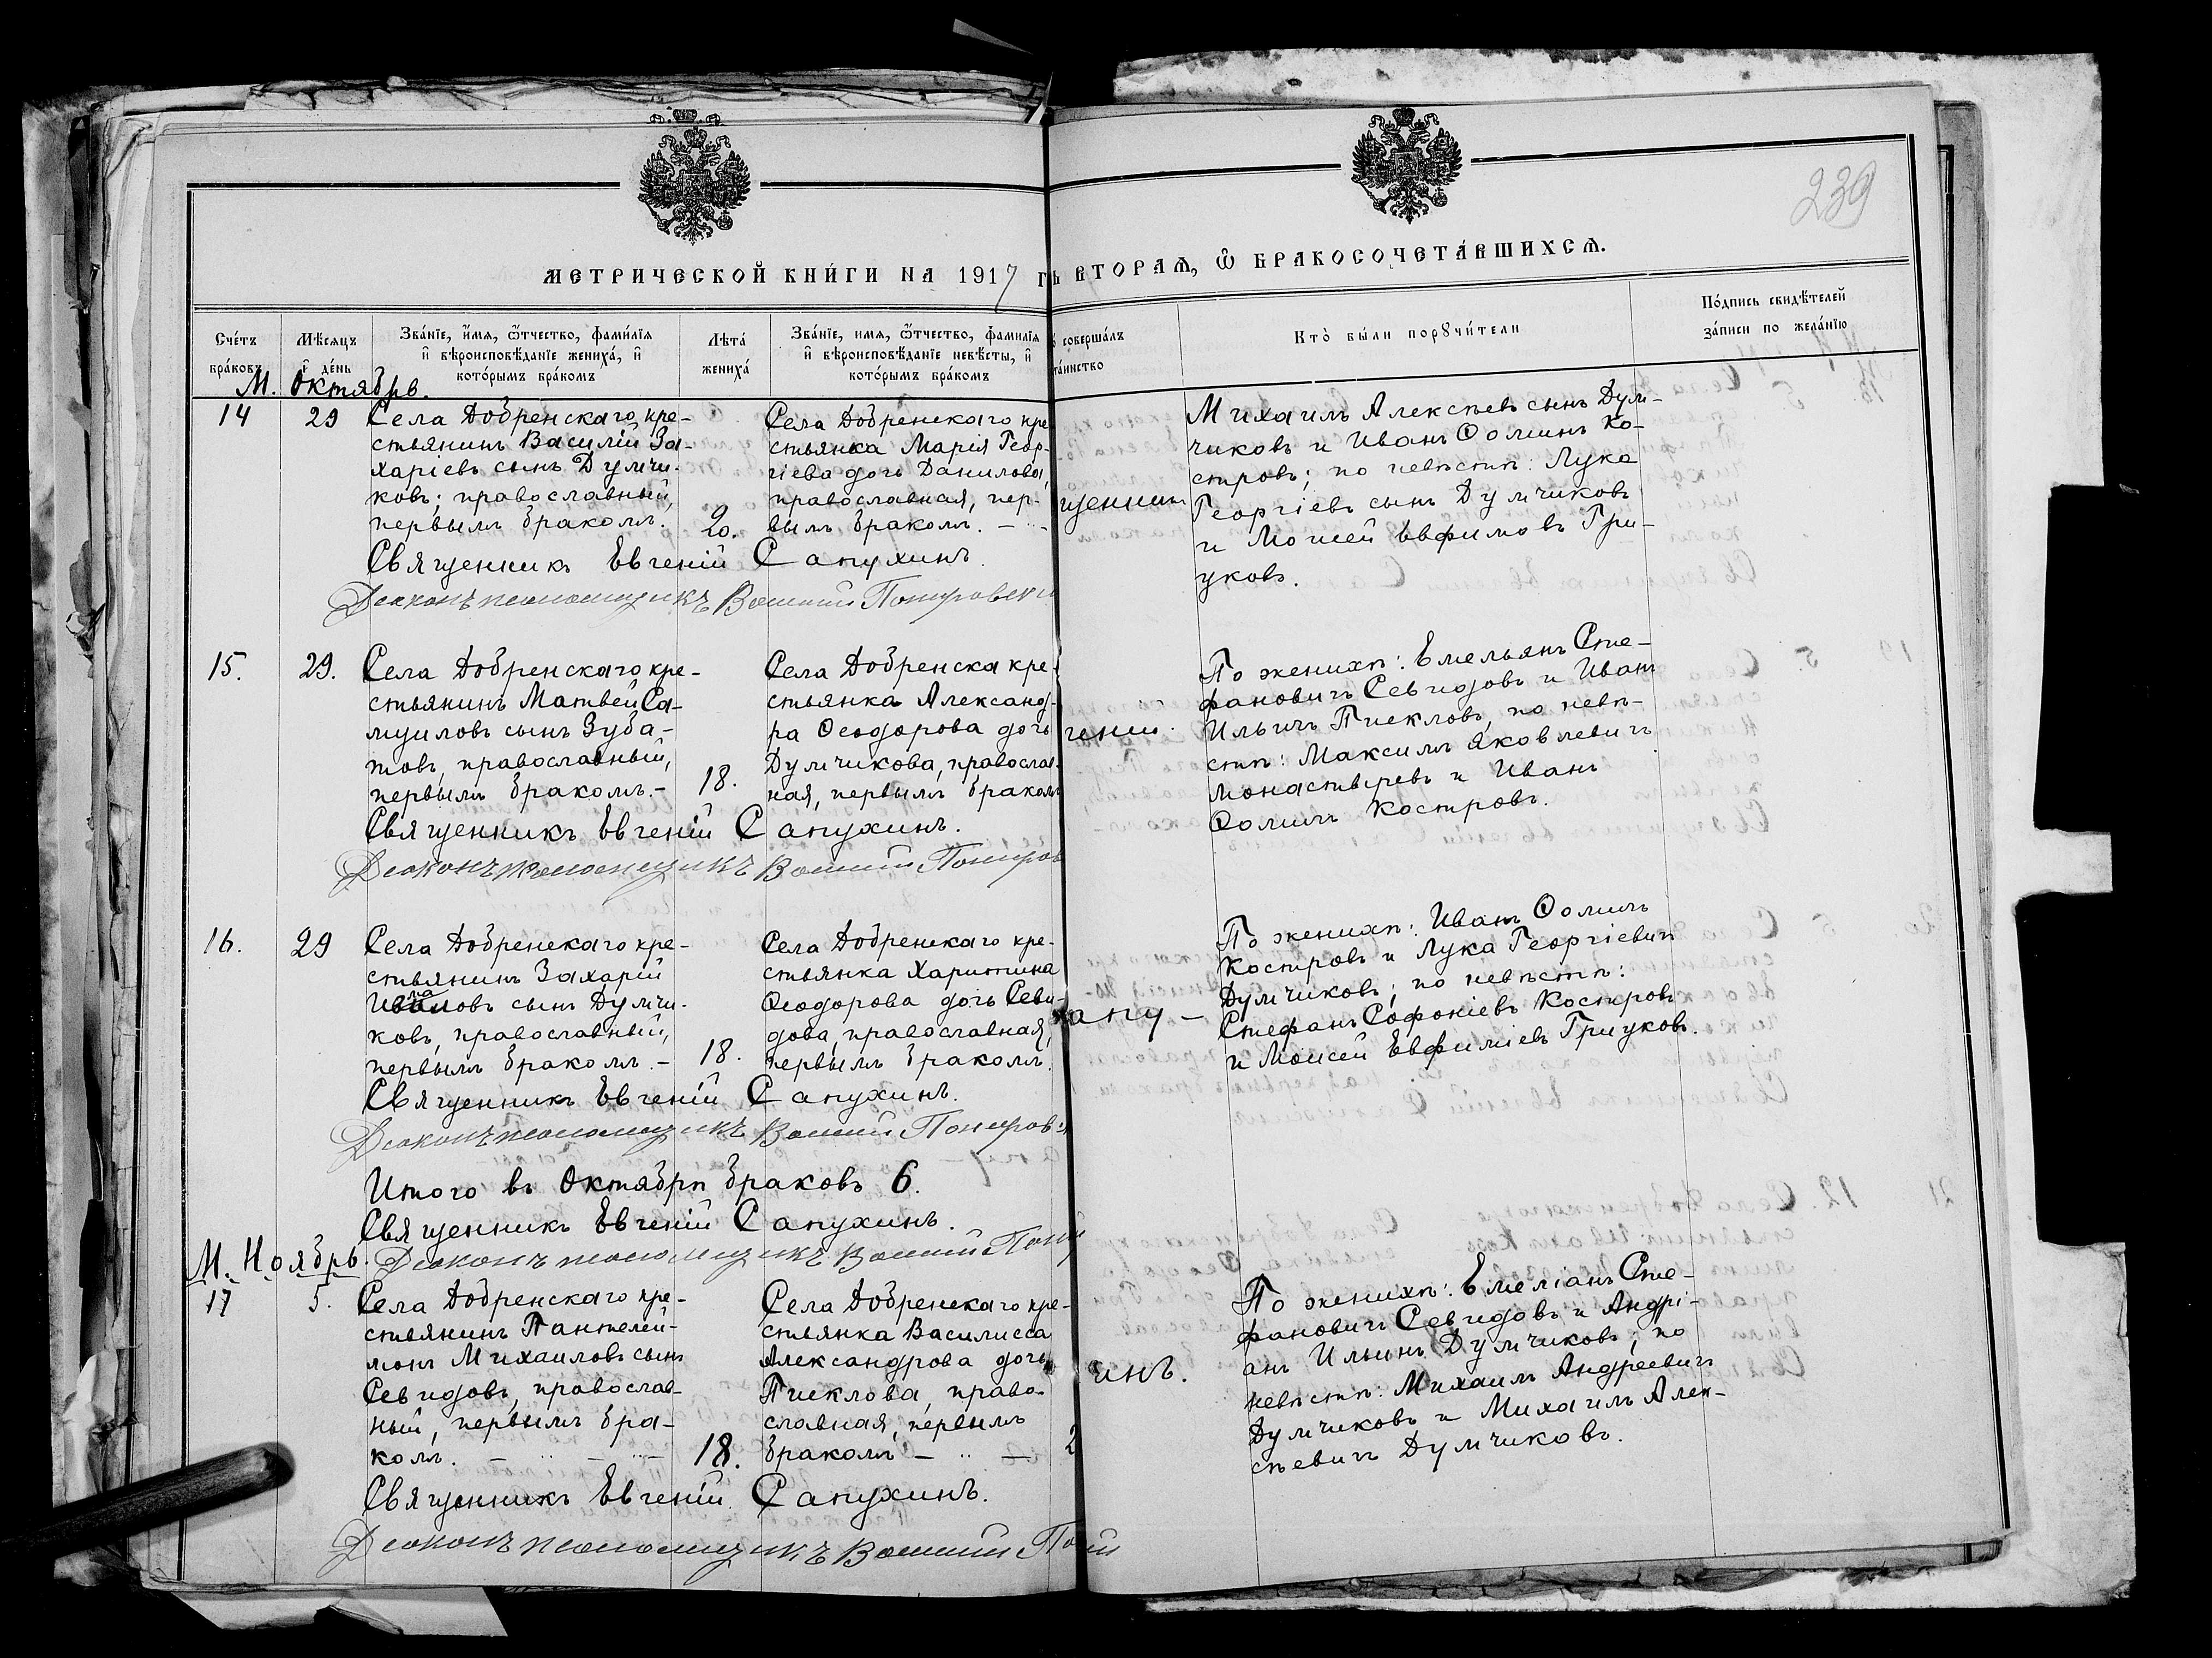 239
МЕТРИЧЕСКОЙ КНИ́ГИ НА 1917 гъ ВТОРАѦ, Ѿ БРАКОСОЧЕТА́ВШИХСѦ.
Сче́тъ бра́ковъ
Мѣ́сяцъ и҆ де́нь
Зва́нїе, и҆́мя, ѻ҆́тчество, фами́лїя и҆ вѣроисповѣ́данїе жениха́, и҆ кото́рымъ бра́комъ
Лѣта́ жениха́
Зва́нїе, имя, ѻ҆́тчество, фамилїя и҆ вѣроисповѣ́данїе невѣ́сты, и҆ кото́рымъ бра́комъ
совершáлъ
тáинство
Кто̀ бы́ли порꙋчи́тели
По́дпись свидѣ́телей за́писи по жела́нїю
М. Октябрь.
14
29
Села Добренскаго кре-
стьянинъ Василій За-
харіевъ сынъ Думчи-
ковъ; православный,
первымъ бракомъ.
20.
Села Добренскаго кре
стьянка Марія Геор-
гіева дочь Данилова,
православная, пер-
вымъ бракомъ. —
щенник
Михаилъ Алексѣевъ сынъ Дум-
чиковъ и Иванъ Ѳоминъ Ко-
стровъ; по невѣстѣ: Лука
Георгіевъ сынъ Думчиковъ
и Моисей Евфимовъ Гри-
цковъ.
Священникъ Евгеній Сапухинъ.
Діаконъ псаломщикъ
15.
29.
Села Добренскаго кре-
стьянинъ Матвей Са-
муиловъ сынъ Зуба-
товъ, православный,
первымъ бракомъ. —
18.
Села Добренска кре-
стьянка Александ-
ра Ѳеодорова дочь
Думчикова, православ-
ная, первымъ бракомъ
геній
По женихѣ: Емельянъ Сте-
фановичъ Севидовъ и Иванъ
Ильичъ Пиекловъ, по невѣ-
стѣ: Максимъ Яковлевичъ
Монастыревъ и Иванъ
Ѳомичъ Костровъ.
Священникъ Евгеній Сапухинъ.
Діаконъ псаломщикъ
16.
29
Села Добренскаго кре-
стьянинъ Захарій
сынъ Думчи-
ковъ, православный,
первымъ бракомъ. —
18.
Села Добренскаго кре-
стьянка Харитина
Ѳеодорова дочь Севи-
дова, православная,
первымъ бракомъ.
апу —
По женихѣ: Иванъ Ѳомичъ
Костровъ и Лука Георгіевич
Думчиковъ; по невѣстѣ:
Стефанъ Софоніевъ Костровъ
и Моисей Евфиміевъ Грицковъ.
Священникъ Евгеній Сапухинъ.
Діаконъ псаломщикъ
Итого въ Октябрѣ браковъ 6.
Священникъ Евгеній Сапухинъ.
Діаконъ псаломщикъ
М. Ноябрь.
17
5.
Села Добренскаго кре-
стьянинъ Пантелей-
монъ Михаиловъ сынъ
Севидовъ, православ-
ный, первымъ бра-
комъ. —
18.
Села Добренскаго кре-
стьянка Василисса
Александрова дочь
Пиеклова, право-
славная, первымъ
бракомъ —
2
инъ.
По женихѣ: Емеліанъ Сте-
фановичъ Севидовъ и Андрі-
анъ Ильинъ Думчиковъ; по
невѣстѣ: Михаилъ Андреевичъ
Думчиковъ и Михаилъ Алек-
сѣевичъ Думчиковъ.
Священникъ Евгеній Сапухинъ.
Діаконъ псаломщикъ